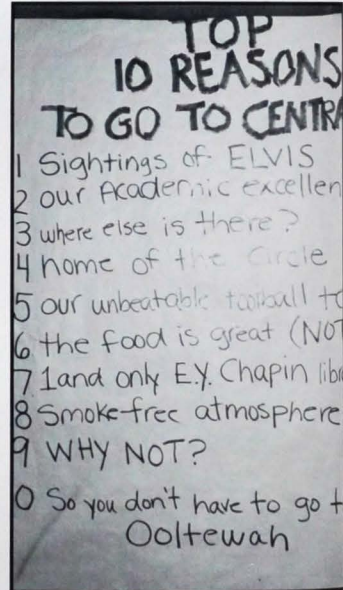 TOP
10 REASONS
TO GO TO CENTRA
1 Sightings of ELVIS
2 our Academic excellen
3 where else is there?
4 home of the Circle
5 our unbeatable football to
6 the food is great (NOT
7 1and only E.Y. Chapin libr
8 Smoke-free atmosphere
9 WHY NOT?
0 So you don't have to go t
Ooltewah